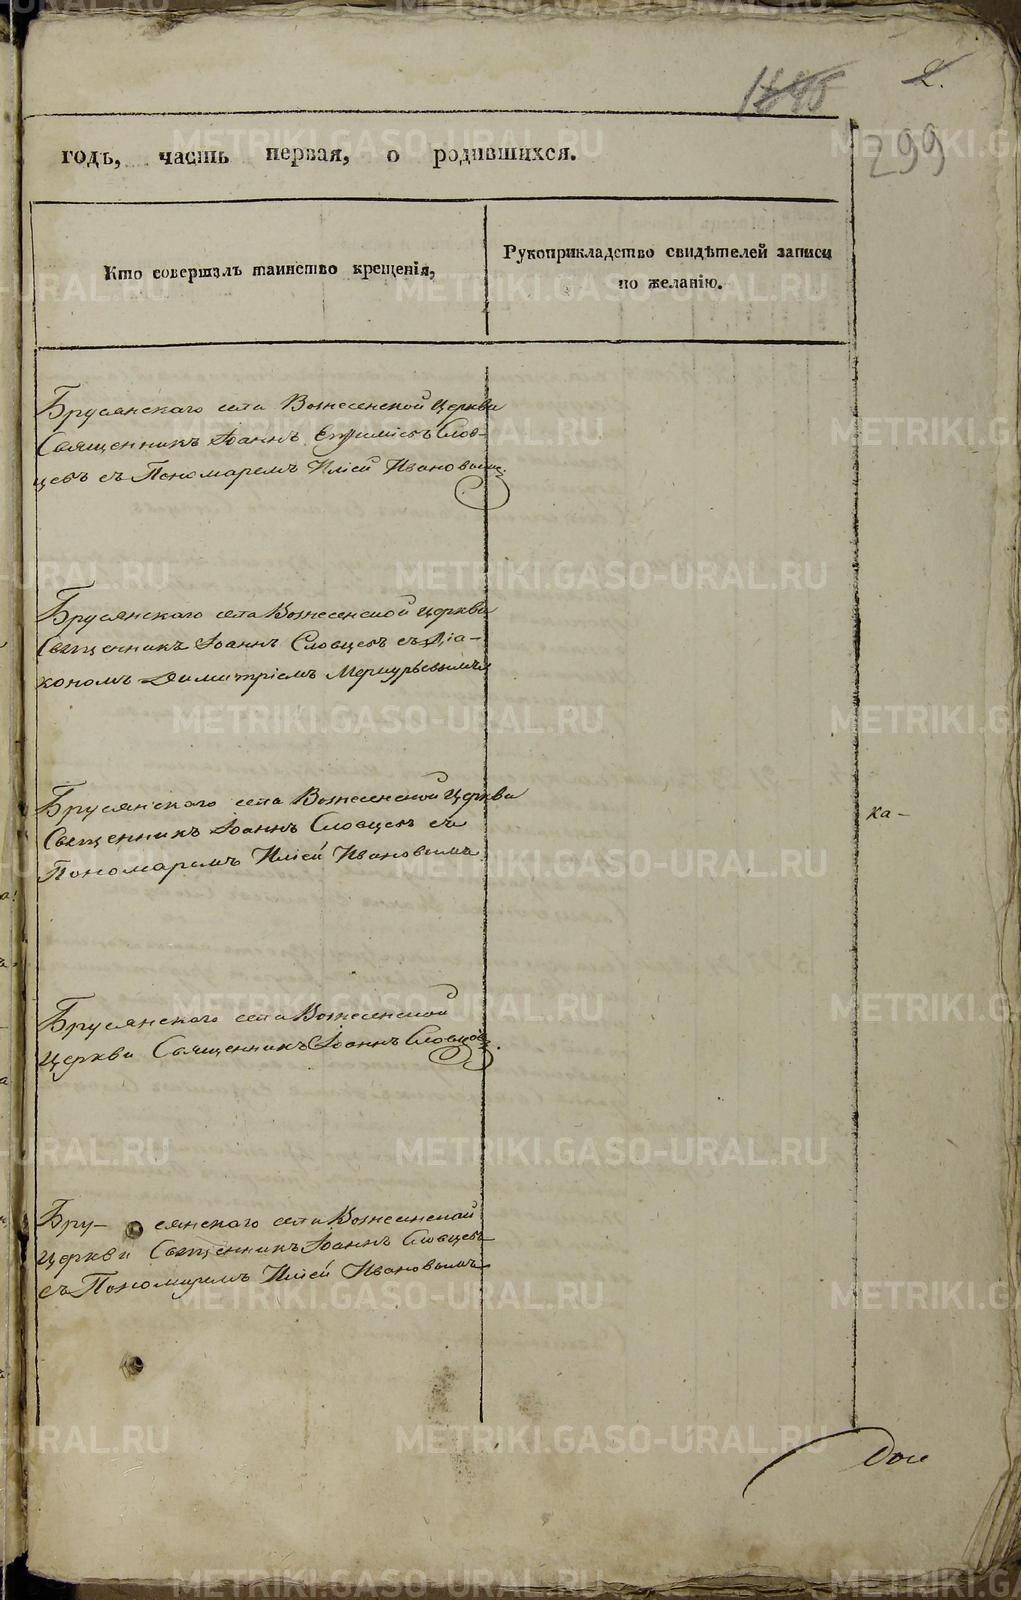 2.
299
годъ, часть первая, о родившихся.
Кто совершалъ таинство крещенія,
Рукоприкладство свидѣтелей записи
по желанію.
Брусянскаго села Вознесенской Церкви
Священникъ Іоаннъ Словцевъ
цевъ съ Пономаремъ Иліей Ивановымъ.
Брусянскаго села Вознесенской Церкви
Священникъ Іоаннъ Словцевъ съ Діа-
кономъ Димитріемъ Меркурьевымъ
Брусянскаго села Вознесенской Церкви
Священникъ Іоаннъ Словцевъ съ
Пономаремъ Иліей Ивановымъ
ка-
Брусянскаго села Вознесенской
Церкви Священникъ Іоаннъ Словцовъ.
Бру- сянскаго села Вознесенской
Церкви Священникъ Іоаннъ Словцевъ
съ Пономаремъ Иліей Ивановымъ
METRIKI.GASO-URAL.RU